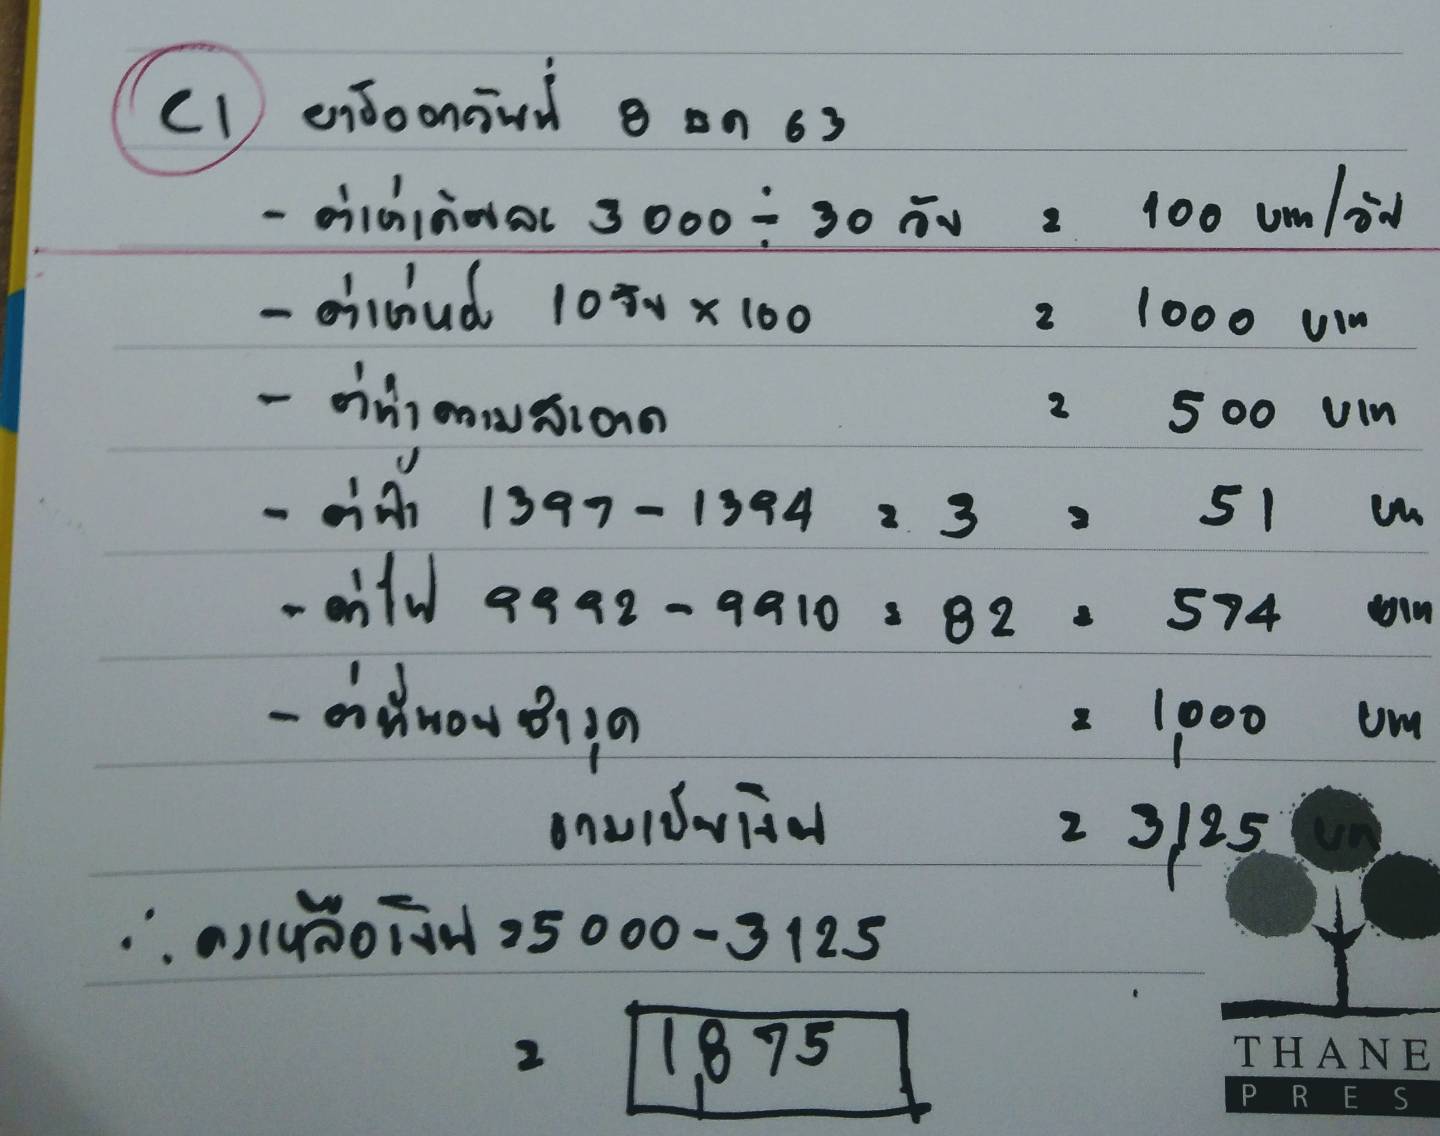 C1 ย้ายออกวันที่ 8 ธค 63
- ค่าเช่าเดือนละ 3000 ÷ 30 วัน = 100 บาท/วัน
- ค่าเช่าห้อง 10 วัน × 100 = 1000 บาท
- ค่าทำความสะอาด = 500 บาท
- ค่าน้ำ 1397 - 1394 = 3 = 51 บาท
- ค่าไฟ 9992 - 9910 = 82 = 574 บาท
- ค่าที่นอนชำรุด = 1,000 บาท
รวมเป็นเงิน = 3,125 บาท
∴ คงเหลือเงิน = 5000 - 3125
= 1,875
THANE
PRES